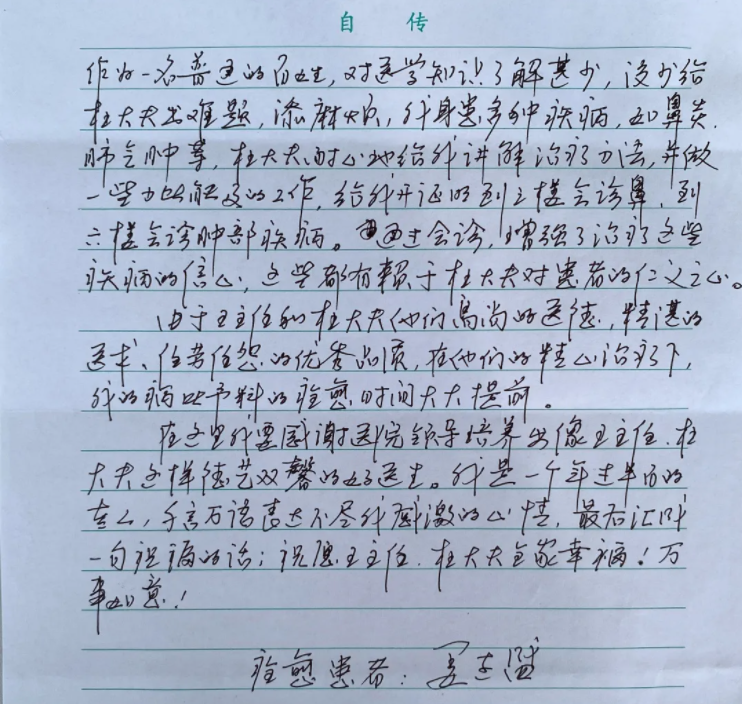 自 传
作为一名普通的百姓,对医学知识了解甚少,没少给
杜大夫出难题,添麻烦,我身患多种疾病,如鼻炎.
肺气肿等,杜大夫耐心地给我讲解治疗方法,并做
一些力所能及的工作,给我开证明到三楼会诊鼻,到
六楼会诊肺部疾病。通过会诊,增强了治疗这些
疾病的信心,这些都有赖于杜大夫对患者的仁义之心。
由于王主任和杜大夫他们高尚的医德,精湛的
医术、任劳任怨的优秀品质,在他们的精心治疗下,
我的病比予料的痊愈时间大大提前。
在这里我要感谢医院领导培养出像王主任.杜
大夫这样德艺双馨的好医生。我是一个年过半百的
老人,千言万语表达不尽我感激的心情,最后汇成
一句祝福的话;祝愿王主任.杜大夫全家幸福!万
事如意!
痊愈患者: